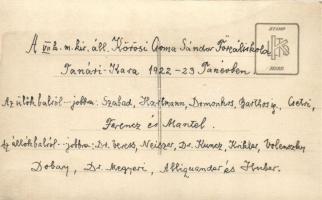 A VII k. m. kir. áll. Kőrösi Csoma Sándor Főreáliskola
Tanári-Kara 1922-23 Tanévben.
Az ülők balról-jobbra: Szabad, Hartmann, Domonkos, Barthos, Csetri,
Ferencz és Mantel.
Az állók balról-jobbra: Dr. Veress, Neiszer, Dr. Kuncz, Krihler, Volenszky
Dobay, Dr. Megyeri, Alliquander és Huber.
STAMP
HERE